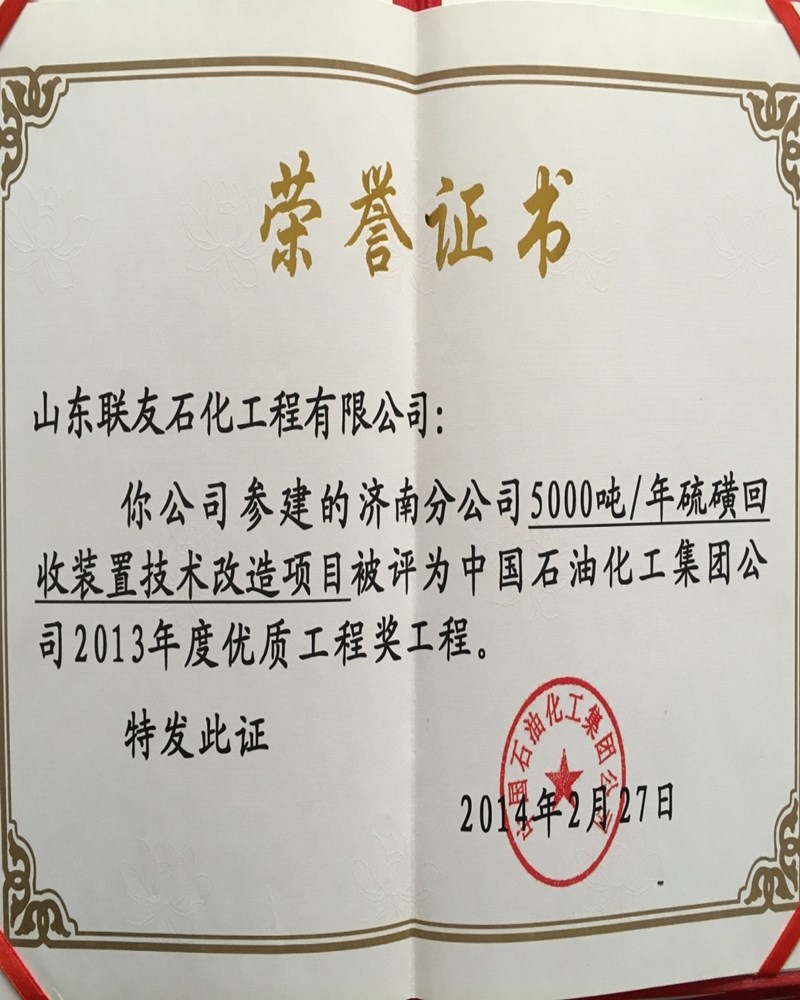 荣誉证书
山东联友石化工程有限公司：
你公司参建的济南分公司5000吨/年硫磺回
收装置技术改造项目被评为中国石油化工集团公
司2013年度优质工程奖工程。
特发此证
中国石油化工集团公司
2014年2月27日